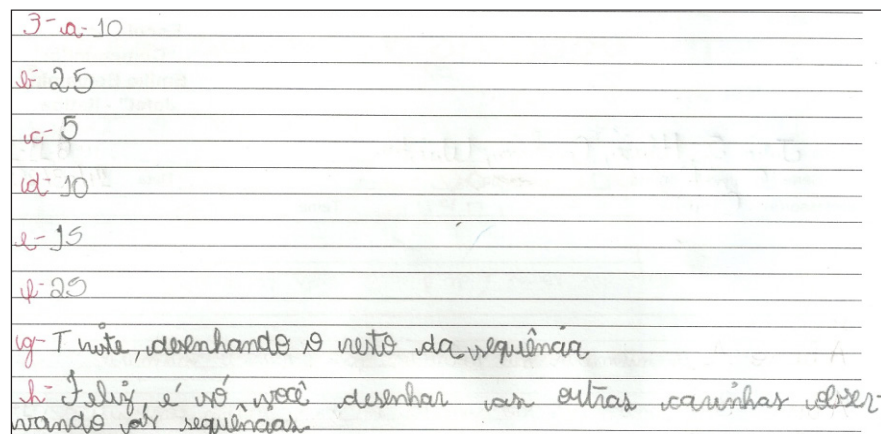 3- a- 10
b- 25
c- 5
d- 10
e- 15
f- 25
g- Triste, desenhando o resto da sequência
h- Feliz, é só você desenhar as outras carinhas obser-
vando as sequências.